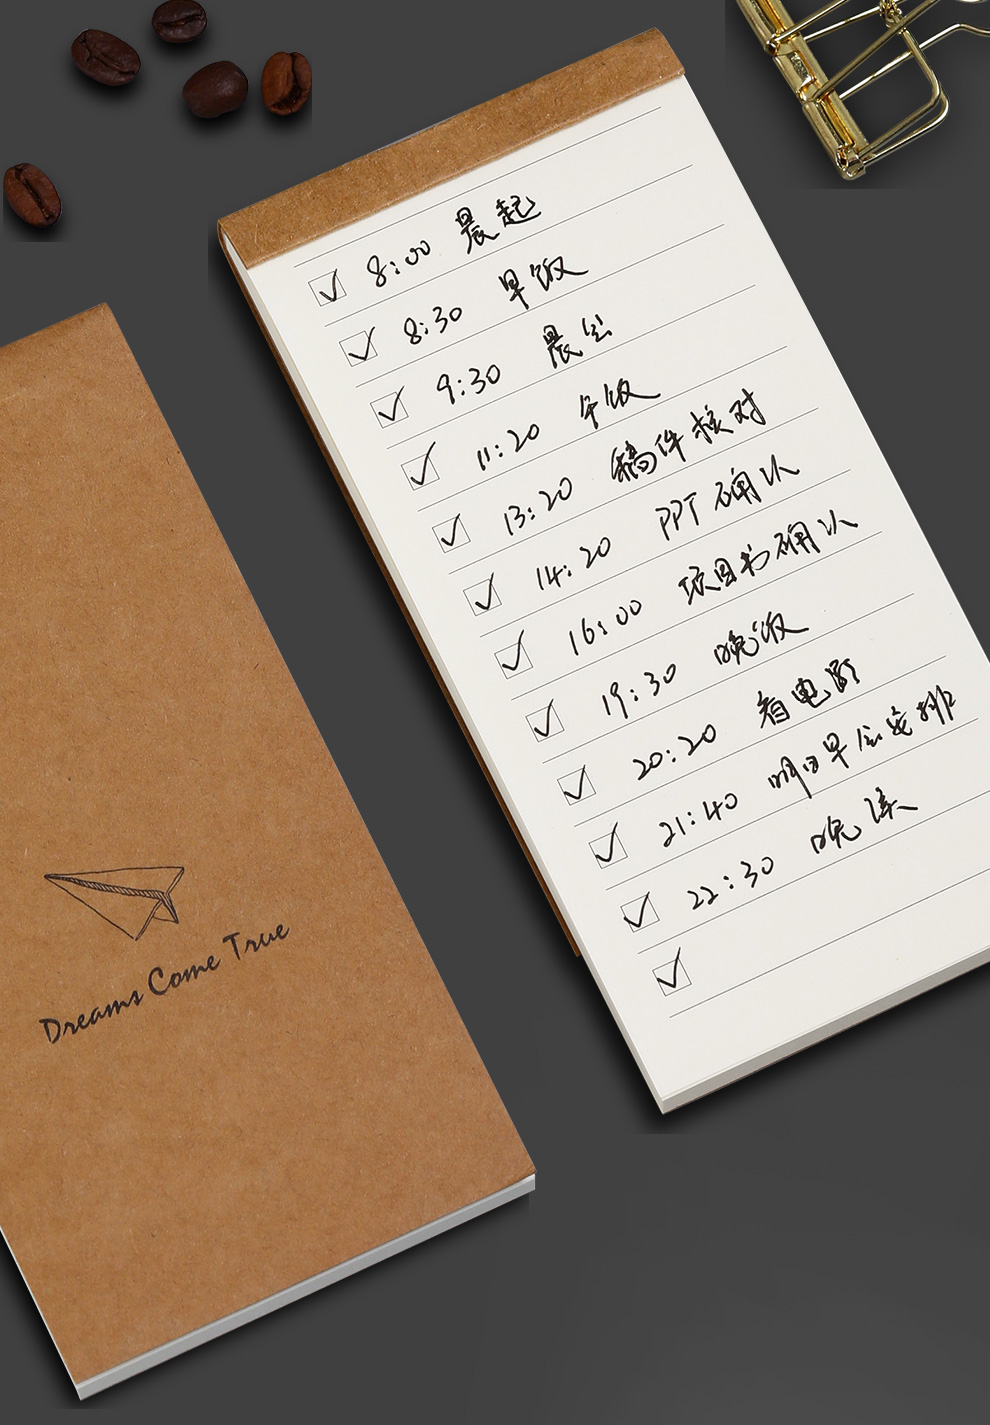 8:00 晨起
8:30 早饭
9:30 晨会
11:20 午饭
13:20 稿件核对
14:20 PPT确认
16:00 项目书确认
19:30 晚饭
20:20 看电影
21:40 明日早会安排
22:30 晚读
Dreams Come True